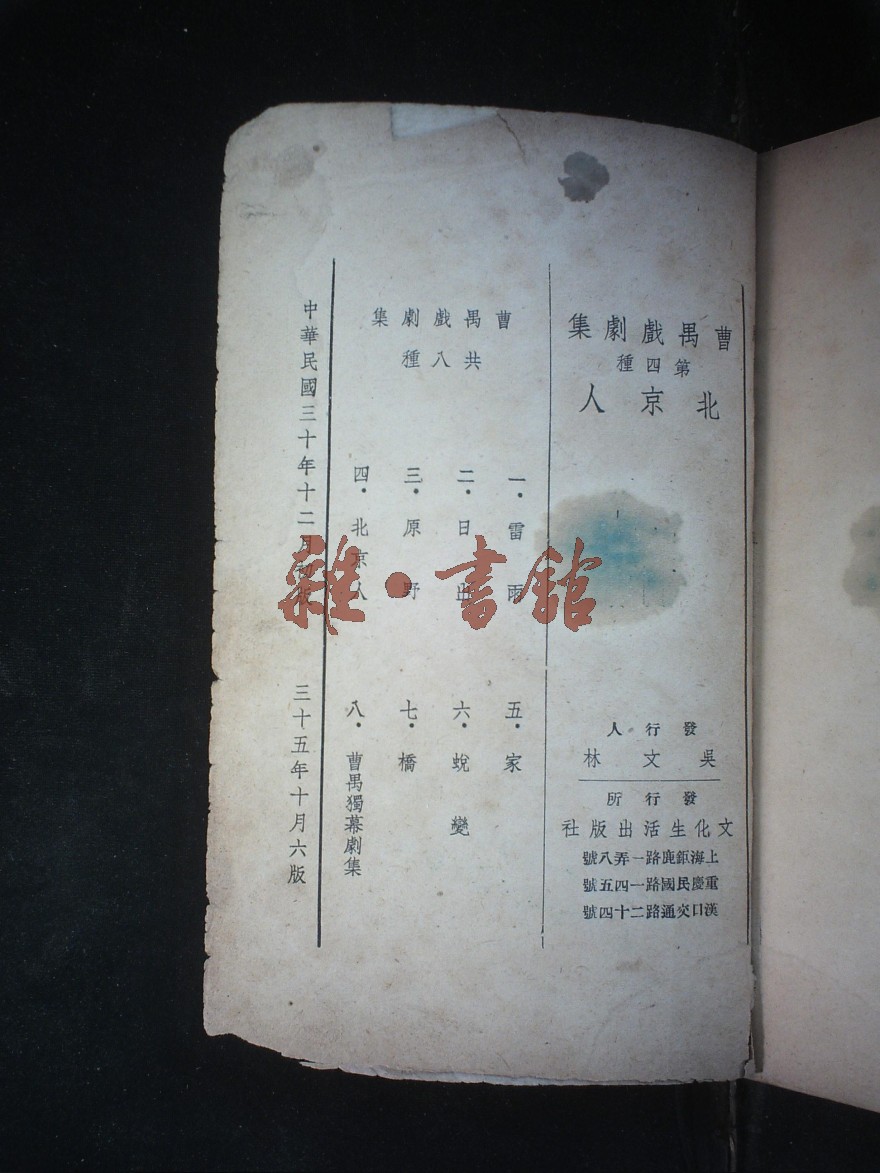 曹禺戲劇集
第四種
北京人
發行人
吳文林
發行所
文化生活出版社
上海鉅鹿路一弄八號
重慶民國路一四五號
漢口交通路二十四號
曹禺戲劇集
共八種
一·雷雨
二·日出
三·原野
四·北京人
五·家
六·蛻變
七·橋
八·曹禺獨幕劇集
中華民國三十年十二月初版
三十五年十月六版
雜·書館